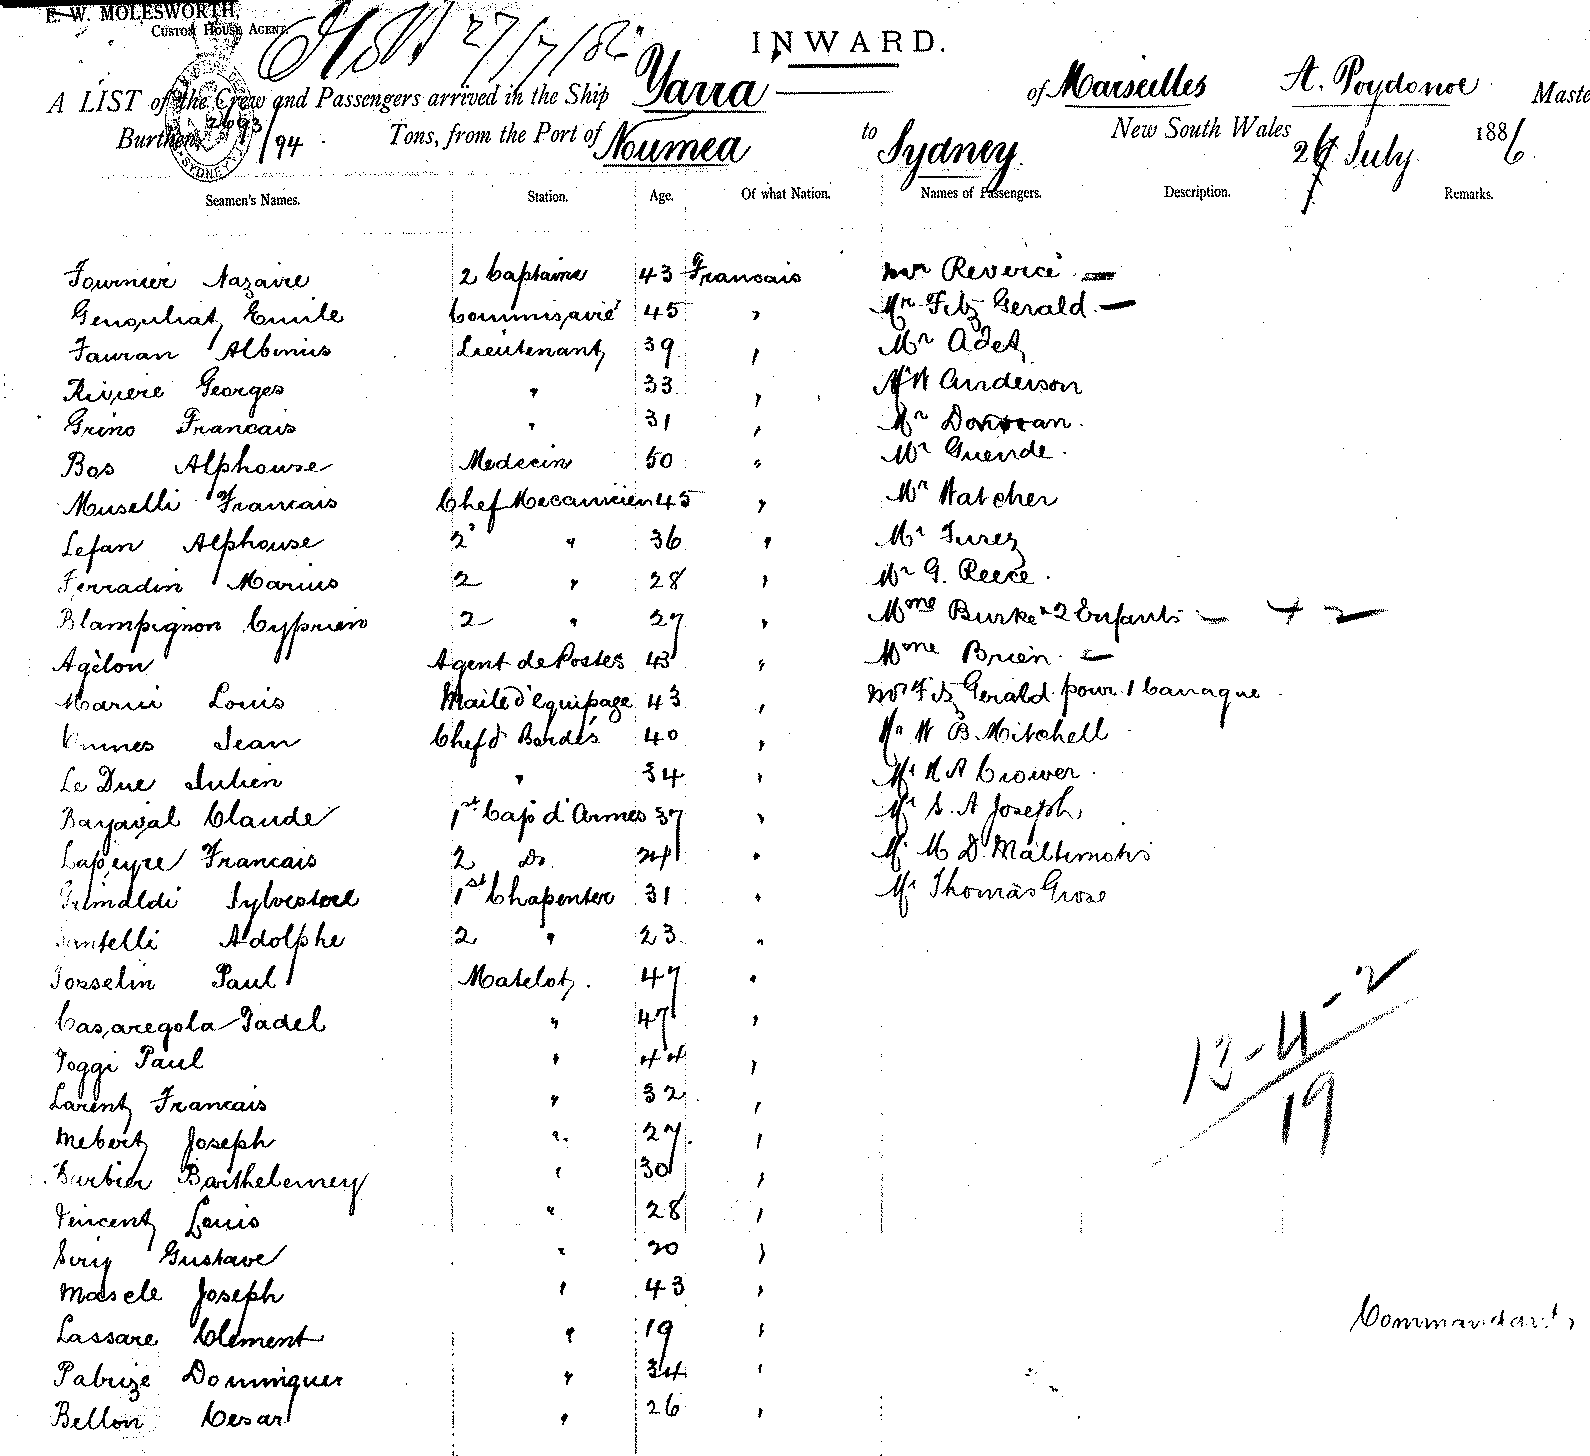 E. W. MOLESWORTH,
CUSTOM HOUSE AGENT.
27/7/86
INWARD.
A LIST of the Crew and Passengers arrived in the Ship Yarra of Marseilles A. Poydenot Maste
Burthen 94 Tons, from the Port of Noumea to Sydney New South Wales July 1886
Seamen's Names. Station. Age. Of what Nation. Names of Passengers. Description. Remarks.
Fournier Nazaire 2 Captaine 43 Francais Mr Revercé —
Emile 45 " Mr Fitz Gerald —
Fauran Lieutenant 39 " Mr Adet
Riviere Georges " 33 " Mr Anderson
Grino Francais " 31 " Mr Donovan
Bos Alphouse Medecin 50 " Mr Guende
Muselli Francais Chef Mecanicien 45 " Mr Hatcher
Lefan Alphouse 2 " 36 " Mr
Ferradin Marius 2 " 28 " Mr G. Reece
Blampignon Cyprien 2 " 27 " Mme Burke & 2 Enfants — + 2 —
Agèlon Agent de Postes 43 " Mme Brien —
Louis d'equipage 43 " Mr Fitz Gerald pour 1 Canaque
Jean Chef d 40 " Mr W B. Mitchell
Le Duc Julien " 34 " Mr
Claude 1st Cap d'Armes 37 " Mr S. A Joseph
Lapeyre Francais 2 Do " Mr M D.
Grimaldi 1st Chapenter 31 " Mr Thomas Grose
Adolphe 2 " 23 "
Josselin Paul Matelot 47 "
Casaregola Padel " 47 "
Poggi Paul " 44 "
Larent Francais " 32 "
Mebert Joseph " 27 "
Barbier Barthelemey " 30 "
Vincent Louis " 28 "
Gustave " "
Mascle Joseph " 43 "
Lassare Clement " 19 "
Dominiquer " 34 "
Bellon Cesar " 26 "
13-4-2
19
Commandant,